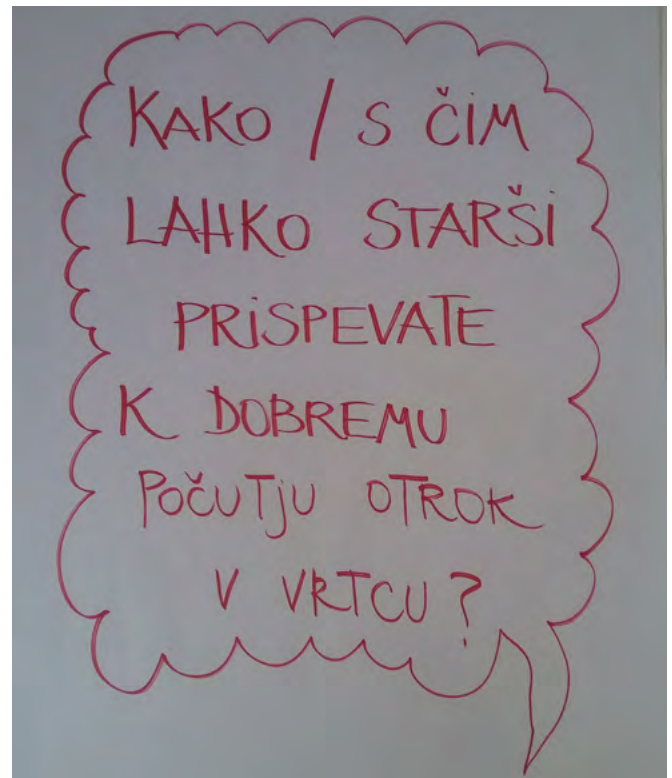 KAKO / S ČIM
LAHKO STARŠI
PRISPEVATE
K DOBREMU
POČUTJU OTROK
V VRTCU?